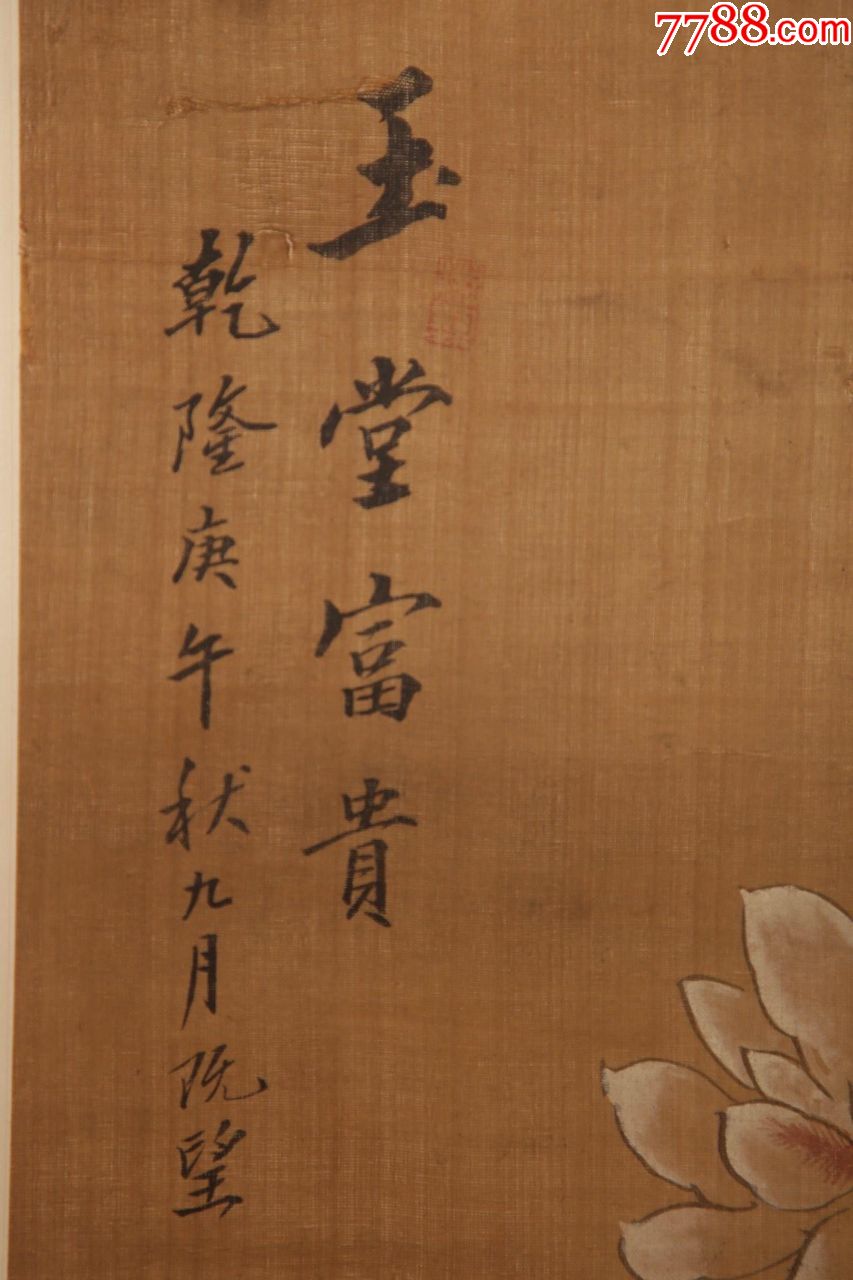 7788.com
玉堂富貴
乾隆庚午秋九月既望